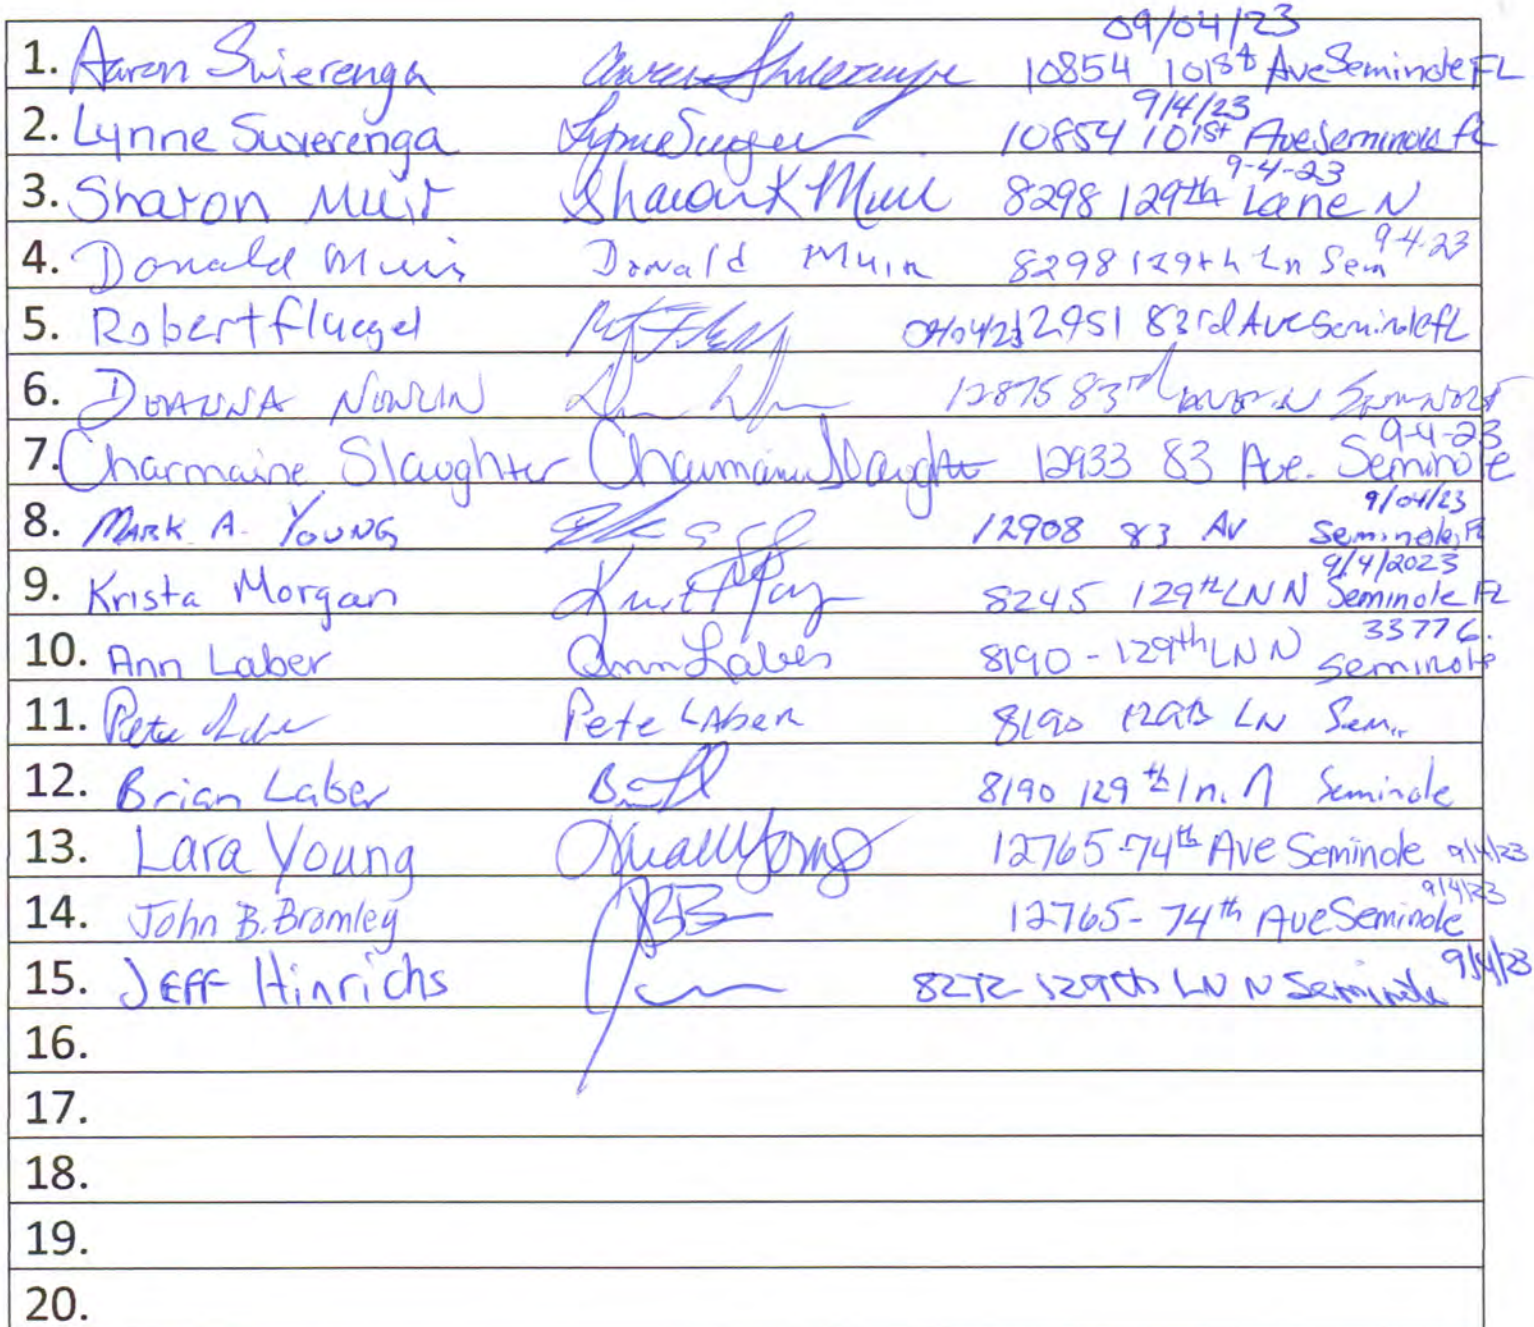 09/04/23
1. Aaron Swierenga 10854 101st Ave Seminole FL
9/4/23
2. Lynne Swierenga 10854 101st Ave Seminole FL
9-4-23
3. Sharon Muir Sharon K Muir 8298 129th Lane N
4. Donald Muir Donald Muir 8298 129th Ln Sem 9-4-23
5. Robert Fluegel 09/04/23 12951 83rd Ave Seminole fL
6. DEANNA NOWLIN 12875 83rd
9-4-23
7. Charmaine Slaughter Charmaine Slaughter 12933 83 Ave. Seminole
9/04/23
8. MARK A. YOUNG 12908 83 AV Seminole, FL
9/4/2023
9. Krista Morgan 8245 129th LN N Seminole FL
33776.
10. Ann Laber Ann Laber 8190 - 129th LN N Seminole
11. Pete Laber Pete LAber 8190 129th LN Sem.
12. Brian Laber 8190 129th ln. N Seminole
13. Lara Young 12765-74th Ave Seminole 9/4/23
9/4/23
14. John B. Bromley 12765- 74th Ave Seminole
15. JEFF Hinrichs 8272 129th LN N Seminole 9/4/23
16.
17.
18.
19.
20.